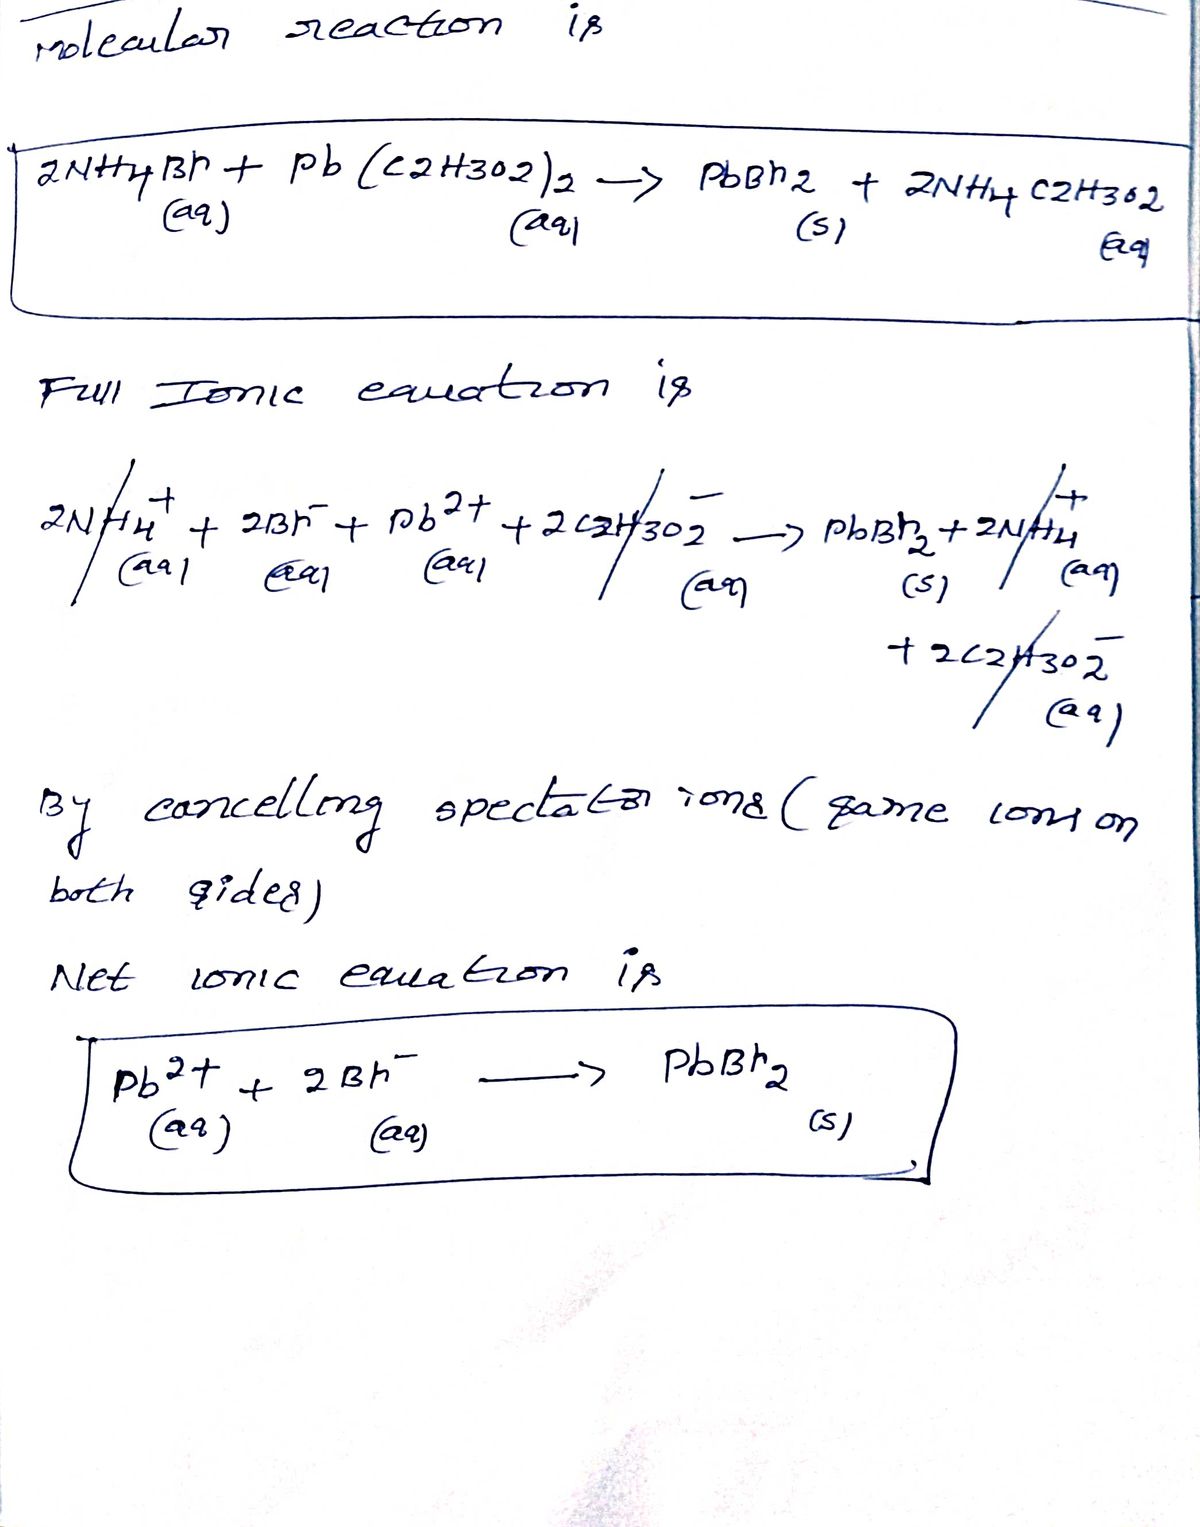 Molecular reaction is
2NH4Br + Pb (C2H3O2)2 → PbBr2 + 2NH4 C2H3O2
(aq) (aq) (s) (aq)
Full Ionic equation is
2NH4+ + 2Br- + Pb2+ + 2C2H3O2- → PbBr2 + 2NH4+
(aq) (aq) (aq) (aq) (s) (aq)
+ 2C2H3O2-
(aq)
By cancelling spectator ions (same ions on
both sides)
Net ionic equation is
Pb2+ + 2Br- → PbBr2
(aq) (aq) (s)